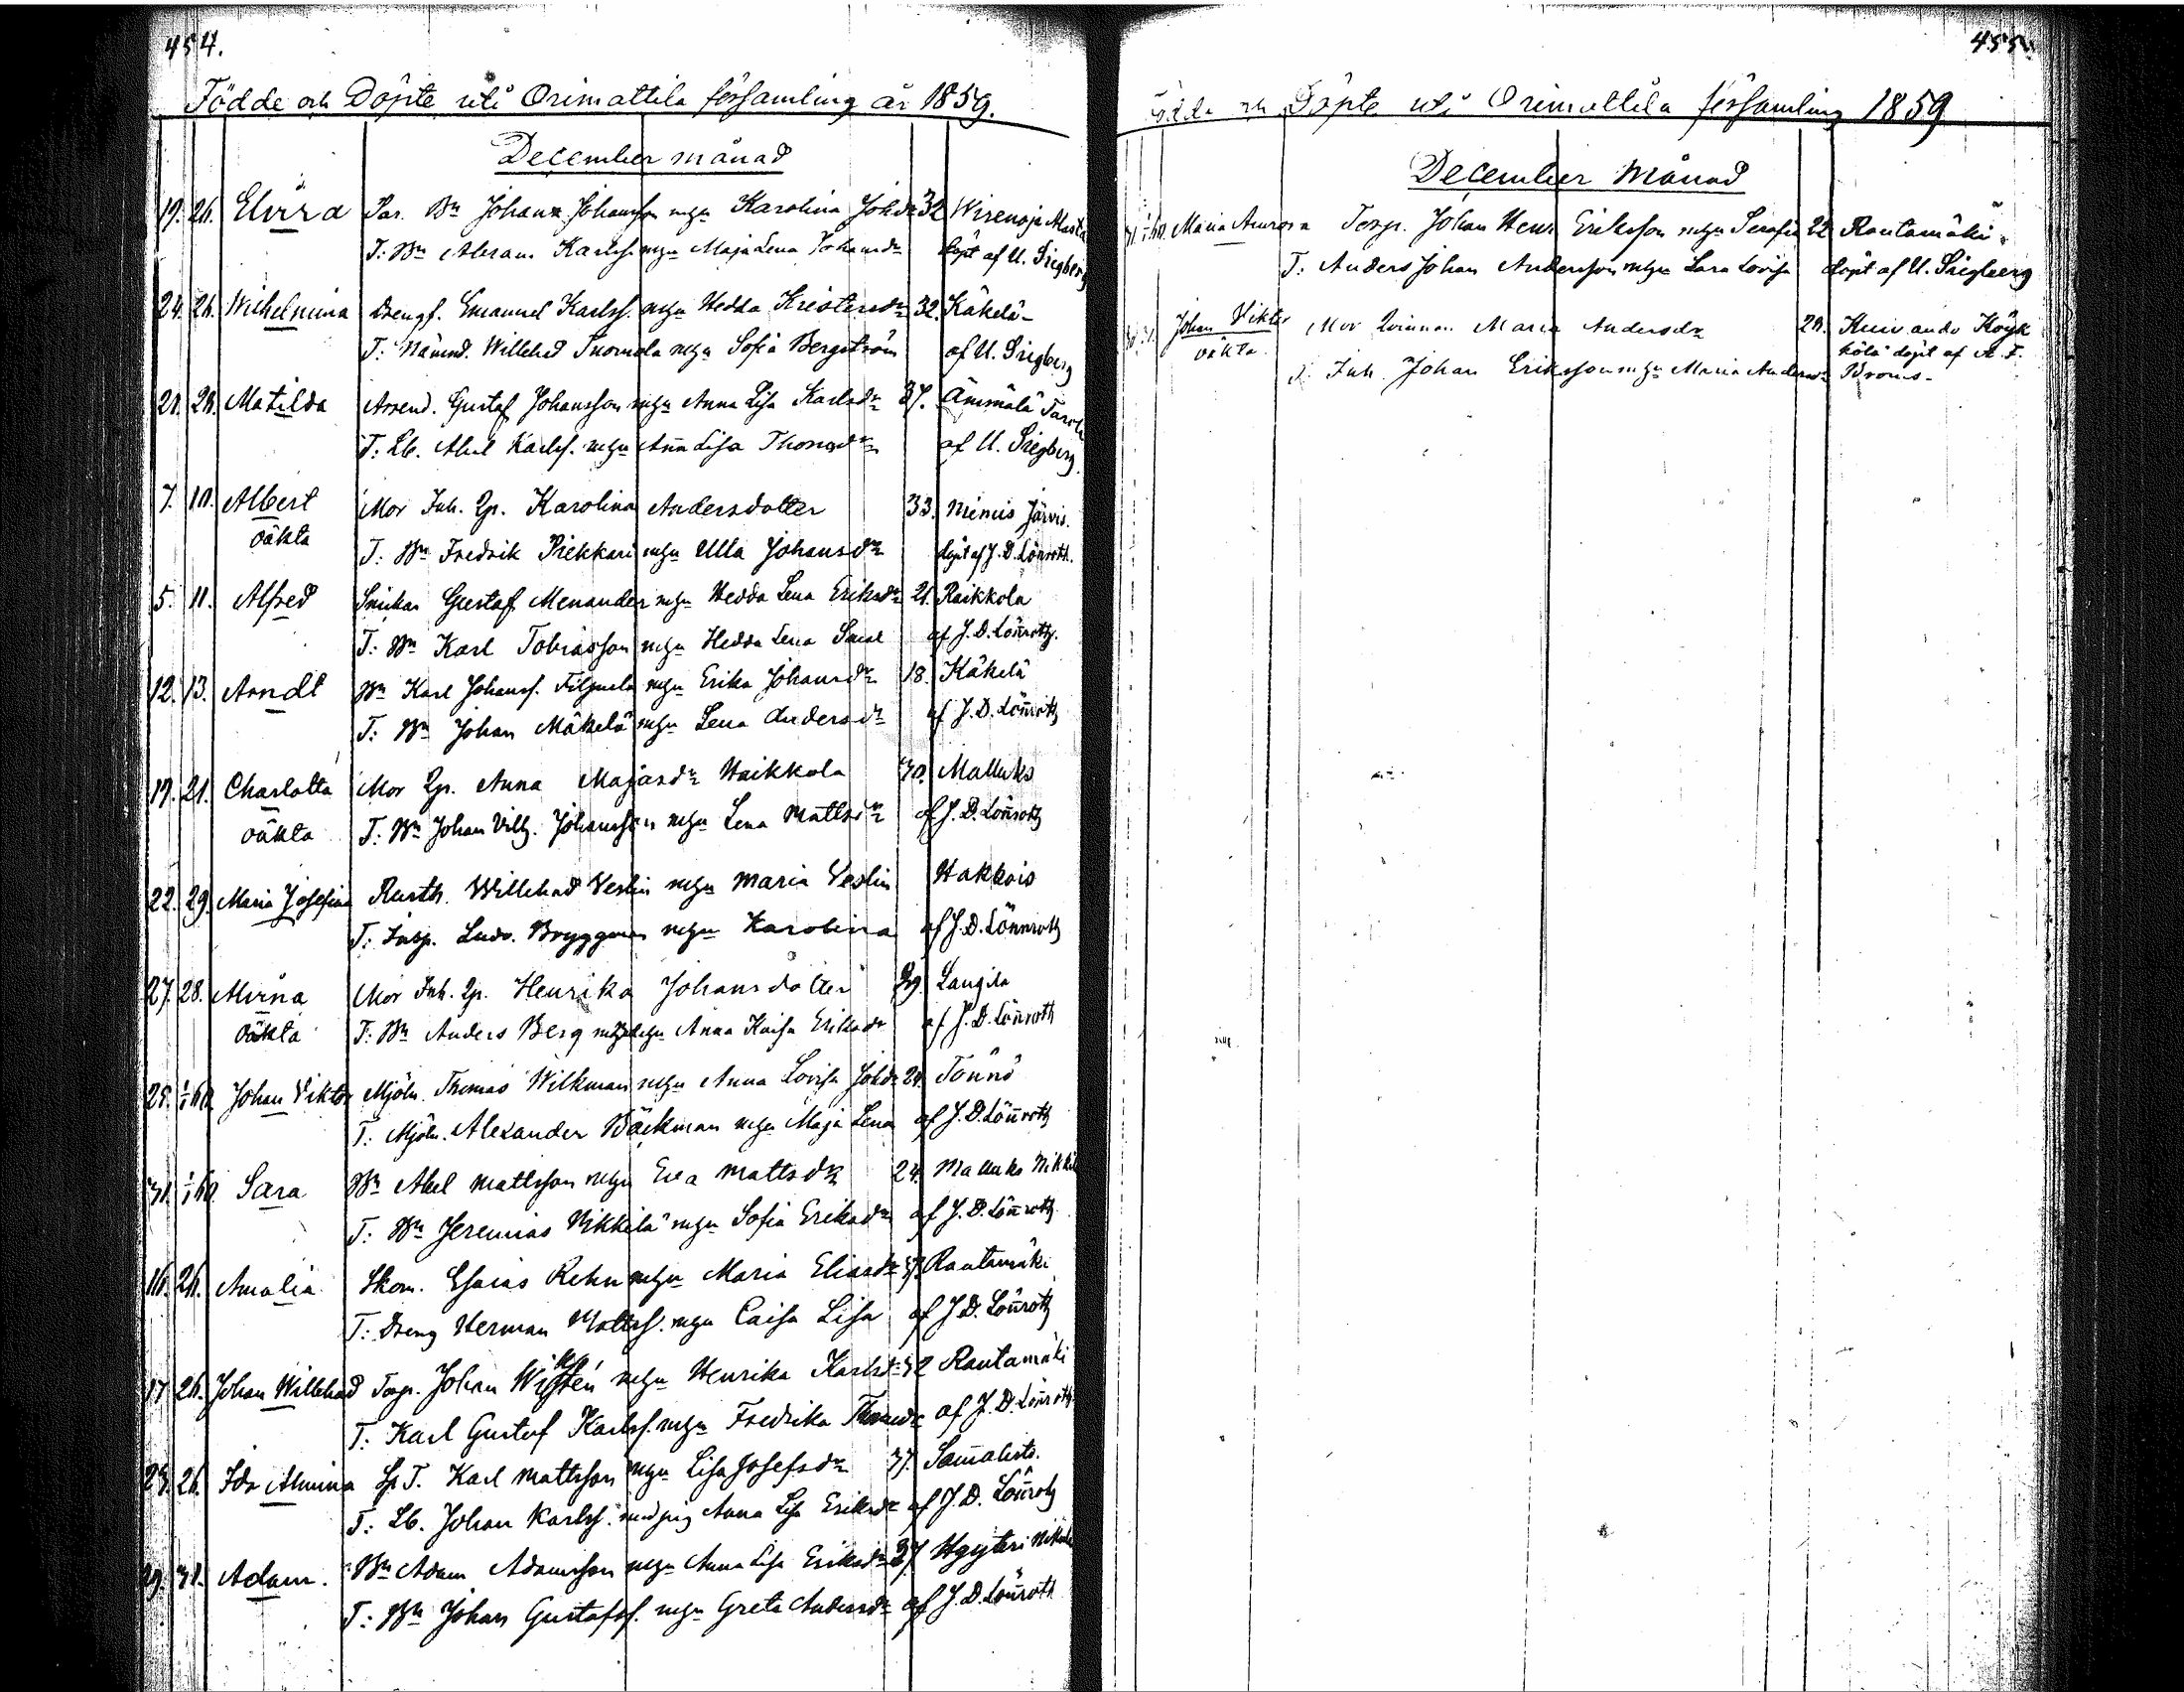 454.
Födde och Döpte uti Orimattila församling år 1859.
December månad
19. 26. Elvira Bn Johan Johansson m hu Karolina Johdr 32 Wirenoja
T: Bn Abram Karlss. m hu Maja Lena Johansdr döpt af U. Siegberg
24. 26. Wilhelmina Drengf. Emanuel Karlss. m hu Hedda Kristersdr 32. Käkelä
T: Nämnd. Willehad Suomela m hu Sofia Bergström af U. Siegberg
21. 28. Matilda Arrend. Gustaf Johansson m hu Anna Lisa Karlsdr 37. Ämmälä
T: Lb. Abel Karlss. m hu Anna Lisa Thomasdr af U. Siegberg
7. 11. Albert Mor Inh. Qp. Karolina Andersdotter 33. Niinis Järvis.
oäkta T: Bn Fredrik Piekkari m hu Ulla Johansdr döpt af J. D. Lönroth.
5. 11. Alfred Snickar Gustaf Menander m hu Hedda Lena Eriksdr 21. Raikkola
T: Bn Karl Tobiasson m hu Hedda Lena af J. D. Lönroth.
12. 13. Arndt Bn Karl Johanss. m hu Erika Johansdr 18. Käkelä
T: Bn Johan Mäkelä m hu Lena Andersdr af J. D. Lönroth
19. 21. Charlotta Mor Qp. Anna Majasdr Haikkola 30. Malluks
oäkta T: Bn Johan Vilh. Johansson m hu Lena Mattsdr af J. D. Lönroth
22. 29. Maria Josefina Rusth. Willehad Veslin m hu Maria Veslin Hakkois
T: Insp. Ludv. Bryggman m hu Karolina af J. D. Lönnroth
27. 28. Mirna Mor Inh. Qp. Henrika Johansdotter 39. Langila
oäkta T: Bn Anders Berg m hu Anna Kaisa Eriksdr af J. D. Lönroth
1/1 60 Johan Viktor Mjöln. Thomas Wilkman m hu Anna Lovisa Johdr 24. Tönnö
T: Mjöln. Alexander Bäckman m hu Maja Lena af J. D. Lönroth
31. 1/1 60. Sara Bn Abel Mattsson m hu Eva Mattsdr 24. Malluks Nikkilä
T: Bn Jeremias Nikkilä m hu Sofia Eriksdr af J. D. Lönroth
16. 26. Amalia Skom. Esaias Rehn m hu Maria Eliasdr 37. Rautamäki
T: Dreng Herman Mattss. m hu Caisa Lisa af J. D. Lönroth
17 26. Johan Willehad Torp. Johan m hu Henrika Karlsdr 32 Rautamäki
T: Karl Gustaf Karlss. m hu Fredrika af J. D. Lönroth
23. 26. Ida Almina Karl Mattsson m hu Lisa Josefsdr 37. Samalisto.
T: Lb. Johan Karlss. med pig Anna Lisa Eriksdr af J. D. Lönroth
29. 31. Adam. Bn Adam Adamsson m hu Anna Lisa Eriksdr 37
T: Bn Johan Gustafss. m hu Greta Andersdr af J. D. Lönroth
455.
Födde och Döpte uti Orimattila församling 1859
December Månad
31. 1/1 60. Maria Aurora Torp. Johan Henr Eriksson m hu Serafia 22. Rautamäki
T: Anders Johan Andersson m hu Sara Lovisa döpt af U. Siegberg
Johan Viktor Mor Qvinnan Maria Andersdr 28. Kuivando Köyk
oäkta. kölä döpt af A. F.
T: Inh. Johan Eriksson m hu Maria Andersdr Broms.